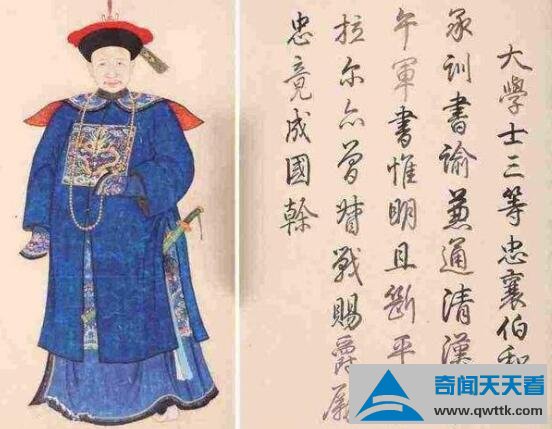 大學士三等忠襄伯和
承訓書諭兼通清漢
午軍書惟明且斷平
拉尔亦曾督戰賜爵
忠竟成國幹
奇闻天天看
www.qwttk.com